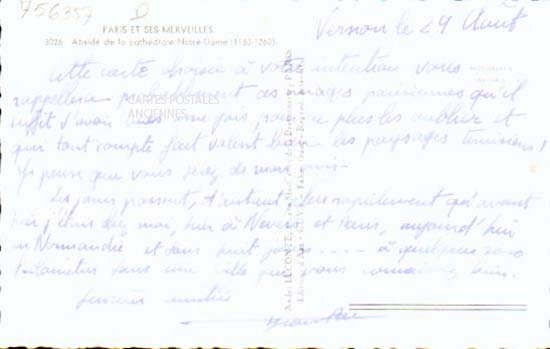 756357 D
PARIS ET SES MERVEILLES
3026. Abside de la cathédrale Notre-Dame (1163-1260).
Vernon le 29 Août
Cette carte choisie à votre intention vous
rappellera probablement ces images parisiennes qu'il
suffit d'avoir vues une fois pour ne plus les oublier et
qui tout compte fait valent bien les paysages tunisiens !
Je pense que vous serez de mon avis.
Les jours passent, d'autant plus rapidement qu'avant
hier j'étais chez moi, hier à Nevers et Paris, aujourd'hui
en Normandie et dans huit jours .... à quelques 2000
kilomètres dans une ville que vous connaissez bien.
CARTES POSTALES
ANCIENNES